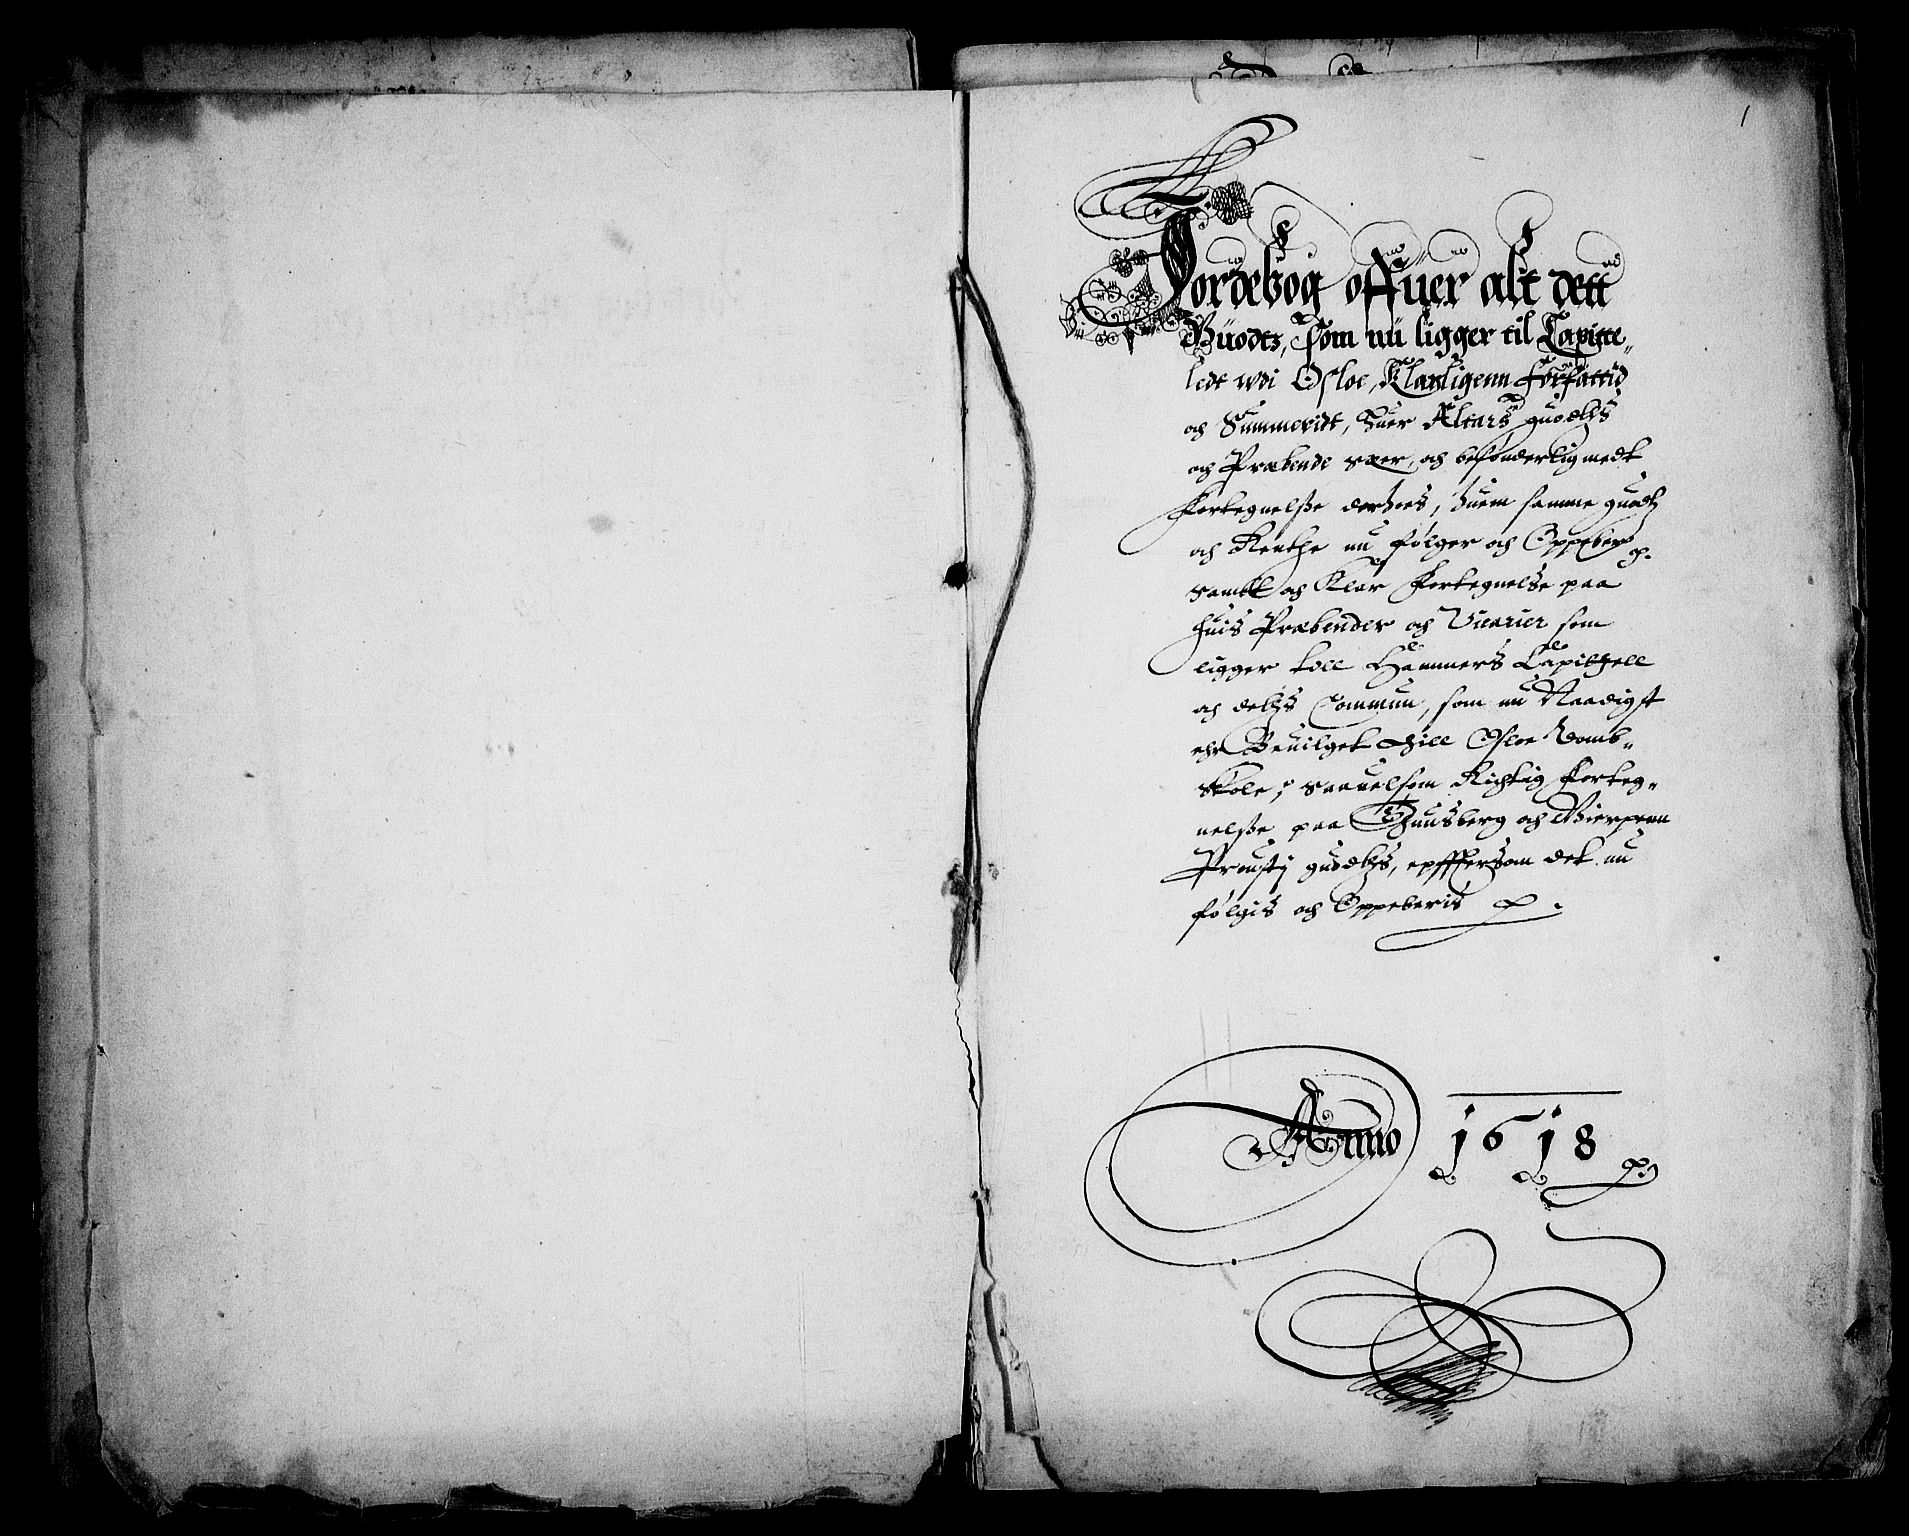 1
Jordebog offuer alt dett
Guodtz, som nu ligger til Capitte„
ledt wdi Osloe, Klarligenn Forfattid
och Summeridt, huer Altars guodtzs
och Præbende Sær, och besønderlig medt
Fortegnelsse derhos, huem samme guodtz
och Renthe nu følger och Oppeber och.
Sambt och Klar Fortegnelse paa
huis Præbender och Vicarier som
ligger till Hammers Capittzell
och detzs Commun, som nu Naadigst
ehr Beuilget thill Osloe Domb„
Skole, Saauelsom Richtig Forteg„
nelsse paa Thunsberg och
Prousti guodtzs, epffthersom det nu
følgis och Oppeberis
Anno 1618